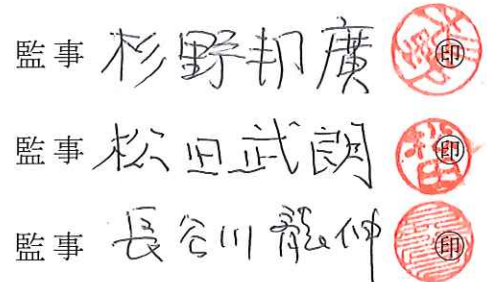 監事 杉野邦廣 ㊞
監事 松田武朗 ㊞
監事 長谷川龍伸 ㊞